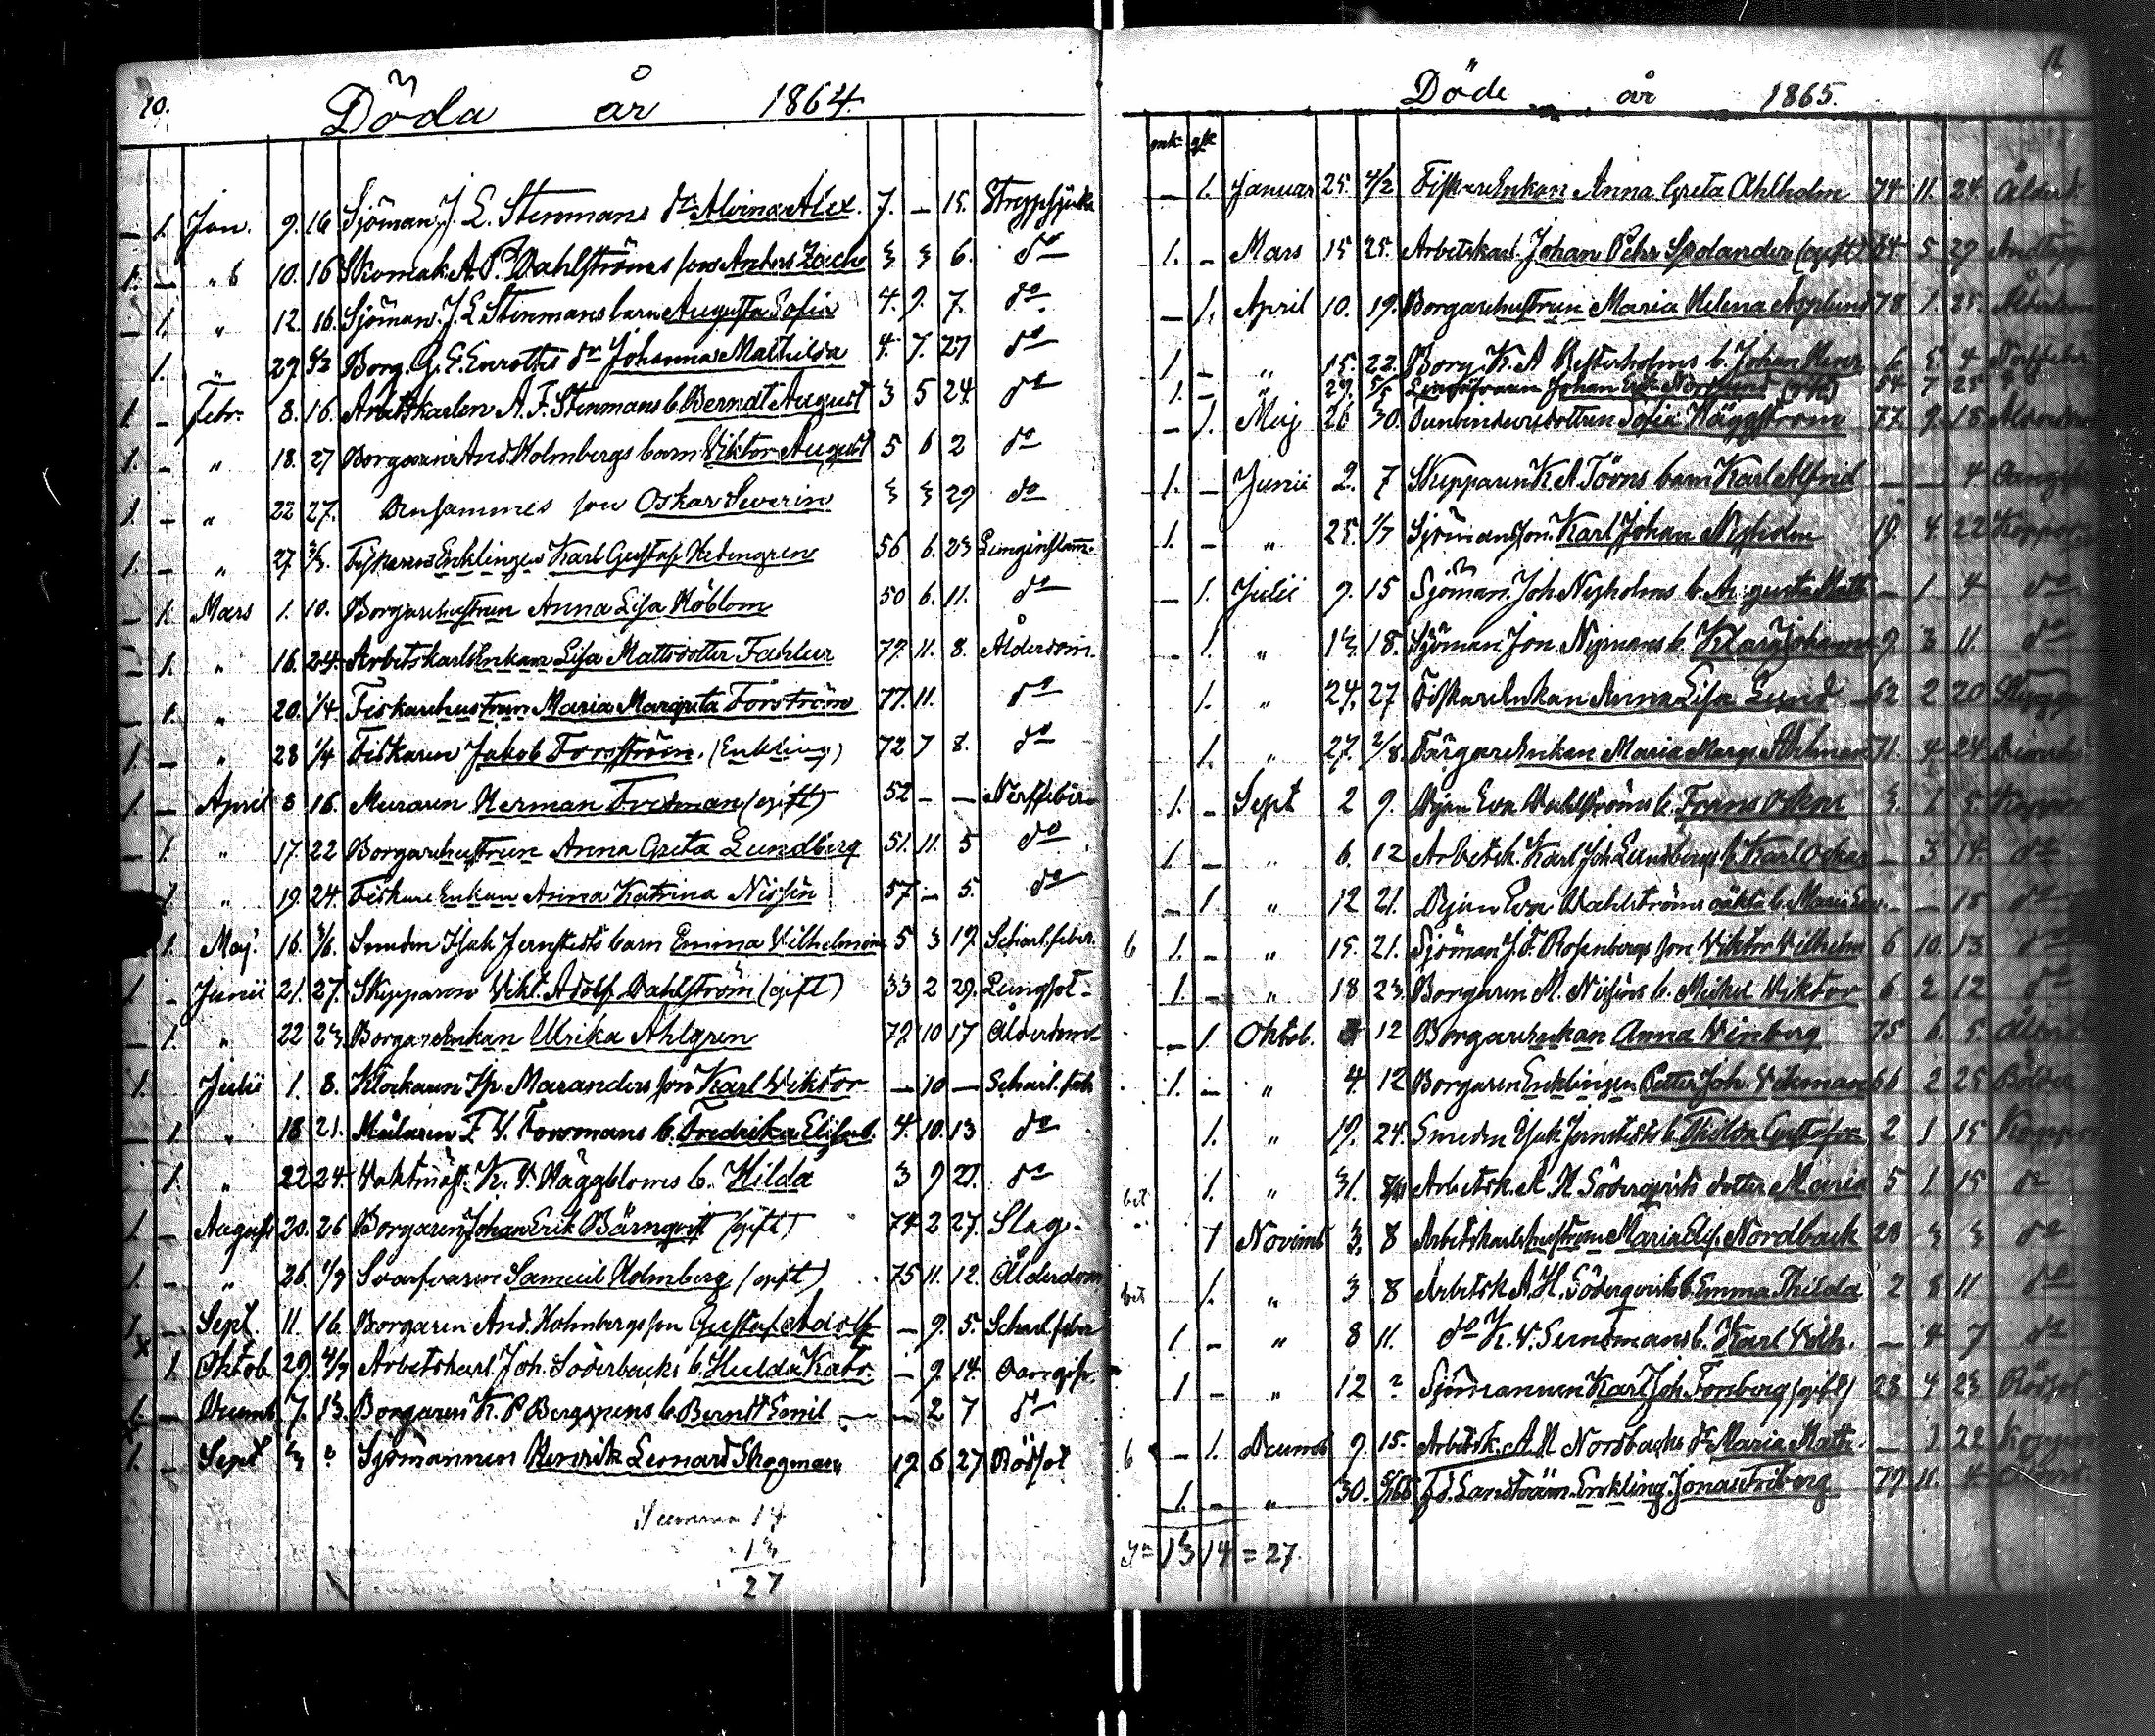 10.
Döda år 1864.
— 1. Jan. 9. 16 Sjöman. J. E. Stenmans dr Alvina Alex. 7. — 15. Strypsjuka
1. — " 10. 16 Skomak. A. P. Dahlströms son Anders Zach 3 3 6. do
— 1. " 12. 16. Sjöman. J. E. Stenmans barn Augusta Sofia 4. 9. 7. do
1. " 29 5/2 Borg. G. F. Enroths dr Johanna Mathilda 4. 7. 27 do
1 — Febr. 8. 16. Arbetskarlen A. F. Stenmans b. Berndt August 3 5 24. do
1. — " 18. 27 Borgaren And. Holmbergs barn Viktor August 5 6 2 do
1. — " 22 27. Densammes son Oskar Severin 3 3 29 do
1 — " 27. Fiskaren Enklingen Karl Gustaf Hedengren 56 6. 23 Lunginflam.
— 1. Mars 1. 10. Borgarehustrun Anna Lisa Höblom 50 6. 11. do
— 1. " 16. 24. Arbetskarls Enkan Lisa Mattsdotter Fahler 79. 11. 8. Ålderdom.
— 1. " 20. 1/4. Fiskarehustrun Maria Margreta Forström 77. 11. do
1 — " 28 1/4 Fiskaren Jakob Forsström. (Enkling) 72 7 8. do
1 — April 8 16. Muraren Herman Fredman (gift) 52 — — Nerffeber
— 1. " 17. 22 Borgarehustrun Anna Greta Lundberg 51. 11. 5 do
1 " 19. 24. Fiskare Enkan Anna Katrina Nissén 57 — 5. do
1. Maj. 16. 3/6. Smeden Isak Jernstedts barn Emma Vilhelmina 5 3 17. Scharl. feber.
1 — Junii 21. 27. Skepparen Vikt. Adolf Dahlström (gift) 33 2 29. Lungsot
— 1. " 22 23 Borgare Enkan Ulrika Ahlgren 79. 10 17 Ålderdom
1. Julii 1. 8. Klockaren Is. Maranders son Karl Viktor — 10 — Scharl. feb.
1. " 18 21. Målaren F. V. Forsmans b. Fredrika Elisab. 4. 10. 13 do
1. " 22 24. Vaktmäst. K. V. Häggbloms b. Hilda 3 9 21. do
1 — August 20. 26 Borgaren Johan Erik Bärnqvist (gift) 74 2 27. Slag
1 — " 26. 1/9 Svarfvaren Samuel Holmberg (gift) 75 11. 12. Ålderdom
1. — Sept. 11. 16. Borgaren And. Holmbergs son Gustaf Adolf — 9. 5. Scharl. feber
1. Oktob. 29. Arbetskarl. Joh. Söderbacks b. Hulda Katr. — 9. 14.
1. — Decemb. 7. 13. Borgaren K. P. Berggrens b. Berndt Emil — — 2 7 do
1. — Sept 3 ? Sjömannen Henrik Leonard Skogman 19 6 27 Rödsot
Summa 14
13
27
11
Döde år 1865.
mk. qk.
— 1. Januar 25. 4/2 Fiskare Enkan Anna Greta Ahlholm 74 11. 24. Ålderd.
1. — Mars 15 25. Arbetskarl. Johan Pehr Spolander (gift) 34 5 29
— 1. April 10. 19. Borgarehustrun Maria Helena Asplund 78 1. 25.
1 — " 15. 22. Borg. K. A. Westerholms b. Johan Henr. 6 5. 4 Nerffeber
1. — " 29. 5/5 Johan Erik Norrlund (gift) 54 7 25
— 1. Maj 26 30. Tunbinderedottren Sofia Häggström 77. 9. 18
1. — Junii 2. 7 Skepparen K. A. Töons barn Karl Alfrid — — 4
1. — " 25. 1/7 Sjömansson. Karl Johan Nyholm 19. 4. 22 Koppor
— 1. Julii 9. 15 Sjöman. Joh Nyholms b. Augusta Math. — 1 4 do
— 1. " 13. 18. Sjöman. Jon. Nymans b. Klara Johanna 9. 3 11. do
1. " 24. 27 Fiskare Enkan Anna Lisa Lund 62 2 20
1. " 27. 2/8. Färgare Enkan Maria Marg. Ahlman 71. 4 24
1. — Sept 2 9. Pigan Eva Wahlströms b. Frans Oskar 3. 1 5 Koppor
1 — " 6. 12 Arbetsk. Karl Joh Lundbergs b. Karl Oskar — 3 14. do
— 1. " 12 21. Pigan Eva Wahlströms oäkta b. Maria Eva. — — 15 do
6 1. — " 15. 21. Sjöman J. F. Rosenbergs son Viktor Vilhelm 6 10. 13 do
1. — " 18 23. Borgaren M. Nissens b. Mickel Viktor 6 2 12 do
— 1. Oktob. 12 Borgare Enkan Anna Vinberg 75 6. 5.
1. — " 4. 12 Borgaren Enklingen Petter Joh. Vikman 66 2 25
1. " 19. 24. Smeden Isak Jernstedts b. Thilda Gustafva 2 1 15 Koppor
bet 1. " 31. Arbetsk. A. H. Söderqvists dotter Maria 5 1. 15 do
1 Novemb 3. 8 Arbetskarlshustrun Maria Elis. Nordback 28 3 3 do
bet 1. " 3 8 Arbetsk A. H. Söderqvists b. Emma Thilda 2 8 11 do
1 — " 8 11. do K. V. Sundmans b. Karl Vilh. — 4 7 do
1 — " 12 ? Sjömannen Karl Joh. Forsberg (gift) 28 4 23 Rödsot
6 — 1. Decemb 9. 15. Arbetsk. A. H. Nordbacks dr Maria Math. — 1 22 Koppor
1. — " 30. 5/1 66 Fd. Landtväm. Enkling. Jonas Friberg 79 11. 4
Sa 13 14 = 27.